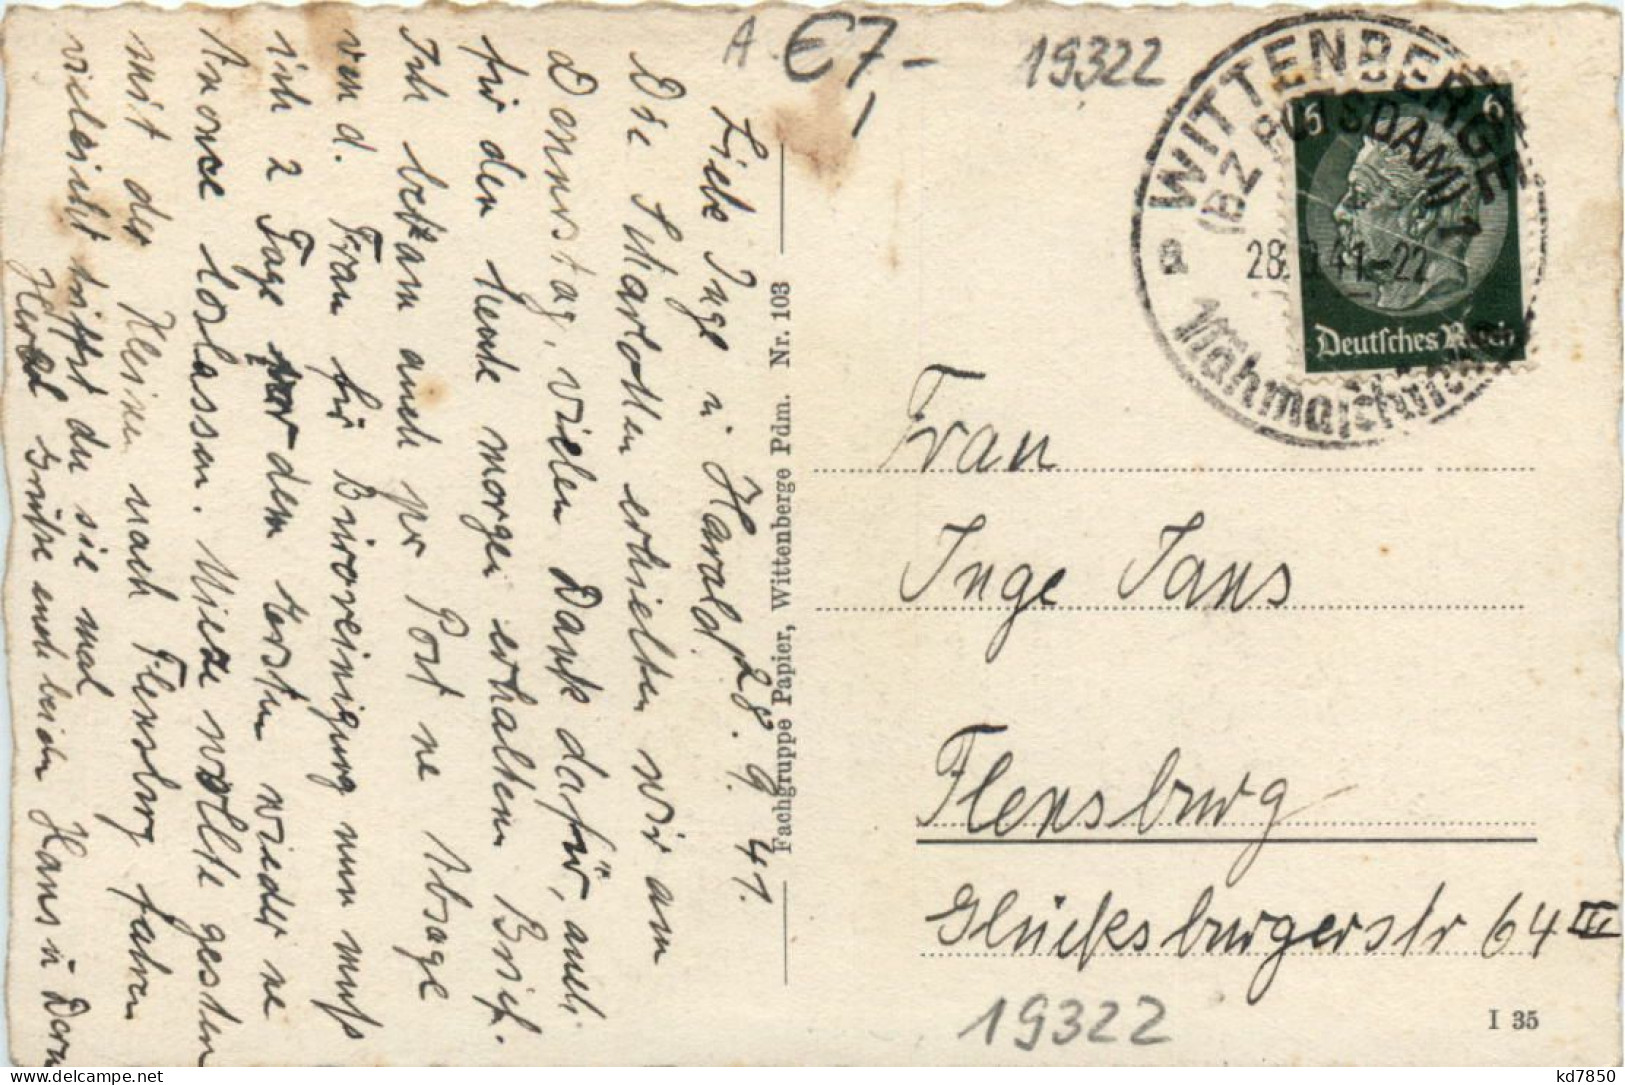 A €7,-
19322
WITTENBERGE
(BZ POTSDAM) 1
28. 9. 41-22
Nähmaschinen
6
6
Deutsches Reich
Liebe Inge u Harald. 28. 9. 41.
Die Zitarotten erhielten wir am
Donnerstag, vielen Dank dafür, auch
für den heute morgen erhaltenen Brief.
Ich bekam auch per Post ne Absage
von d. Frau für Büroreinigung nun muß
ich 2 Tage vor dem Ersten wieder ne
Anonce loslassen. Mieze wollte gestern
mit der Kleinen nach Flensburg fahren
vielleicht triffst du sie mal
Herzl Grüße euch beiden Hans u
Fachgruppe Papier, Wittenberge Pdm. Nr. 103
Frau
Inge Jans
Flensburg
Glücksburgerstr 64 III
19322
I 35
kd7850